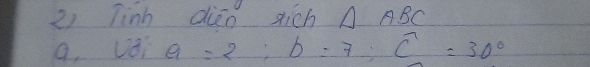 2) Tính diện tích Δ ABC
a, Với a = 2 ; b = 7 ; Ĉ = 30°